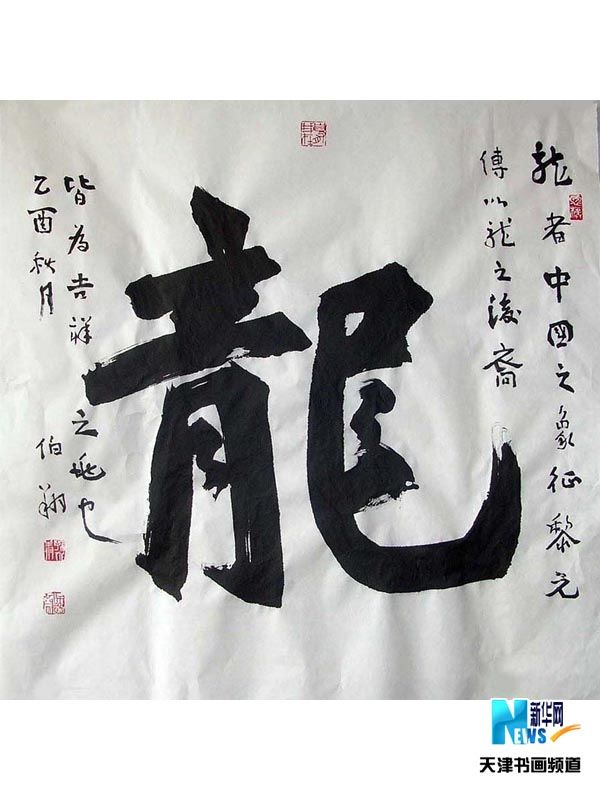 龍
龙者中国之象征黎元
傳以龙之後裔
皆为吉祥之兆也
乙酉秋月
伯翔
新华网
NEWS
天津书画频道